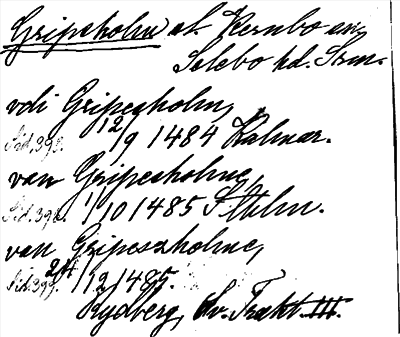 Gripsholm sl. Kernbo sn,
Selebo hd. Srm.
vdi Gripesholm,
Sid. 398. 12/9 1484 Kalmar.
van Gripesholme,
Sid. 398. 1/10 1485 Sthlm.
van Gripeszholme,
Sid. 399. 24/12 1485.
Rydberg, Sv. Trakt. III.